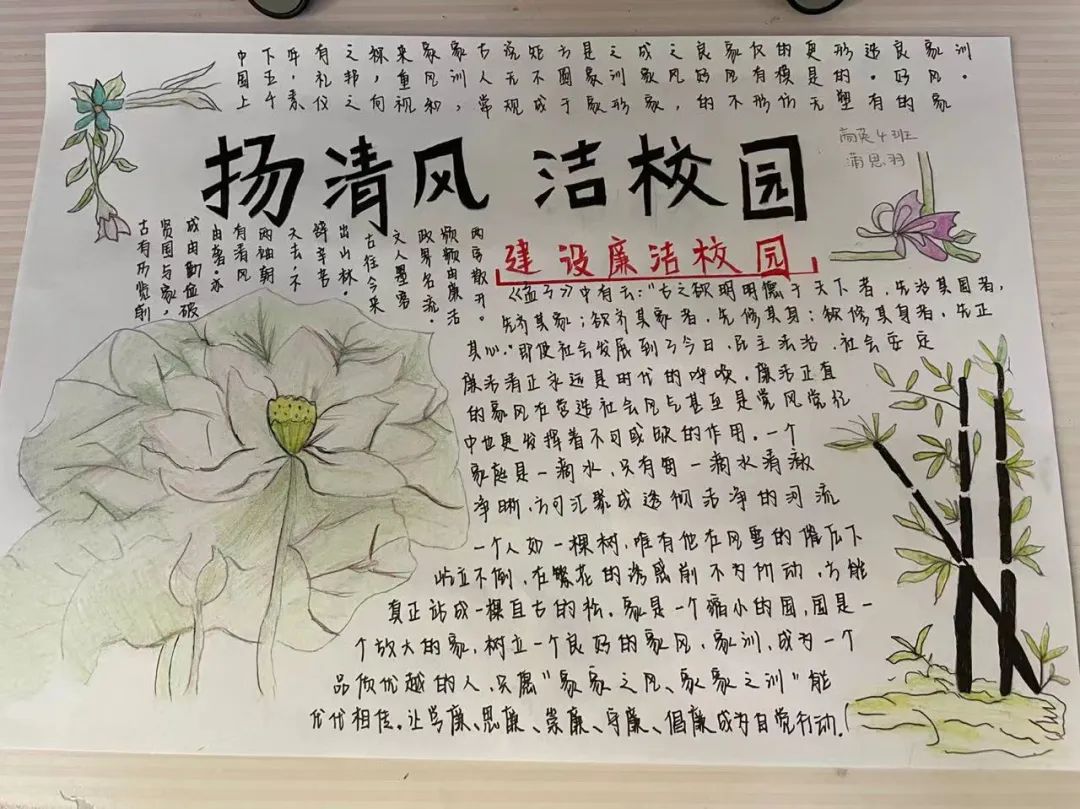 中下年有之称来家家古说矩方是之成之良家仅的更形造良家训
国五，礼邦，重风训人无不圆家训家风好风有模是的。好风。
上千素仪之向视和，常规成于家形家，的不形仿无塑有的家
扬清风 洁校园
高英4班
蒲思羽
古有历览前
贤国与家，
成由勤俭破
由奢。亦
有清风
两袖朝
天去，不
辞辛苦
出山林。
古往今来
文人墨客
政界名流，
频频由廉洁
两字散开。
建设廉洁校园
《孟子》中有云："古之欲明明儒于天下者，先治其国者，
先齐其家；欲齐其家者，先修其身；欲修其身者，先正
其心。"即使社会发展到了今日，民主法治，社会安定
廉洁清正永远是时代的呼唤，廉洁正直
的家风在营造社会风气甚至是党风党纪
中也更发挥着不可或缺的作用。一个
家庭是一滴水，只有每一滴水清澈
净晰，方可汇聚成透彻洁净的河流
一个人如一棵树，唯有他在风雪的催压下
屹立不倒，在繁花的诱惑前不为所动，方能
真正站成一棵亘古的松。家是一个缩小的国，国是一
个放大的家，树立一个良好的家风，家训，成为一个
品质优越的人，只愿"家家之风、家家之训"能
代代相传。让学廉、思廉、崇廉、守廉、倡廉成为自觉行动！